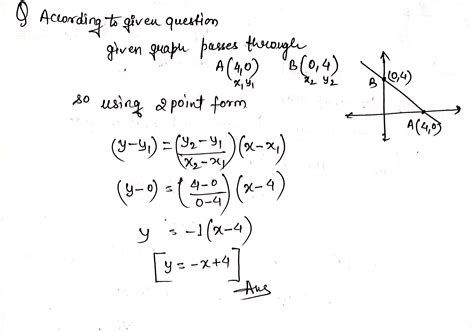 Q According to given question
given graph passes through
A(4,0) B(0,4)
x₁ y₁ x₂ y₂
B (0,4)
A(4,0)
so using 2 point form
(y-y₁) = (y₂-y₁/x₂-x₁)(x-x₁)
(y-0) = (4-0/0-4)(x-4)
y = -1(x-4)
[y = -x+4]
Ans